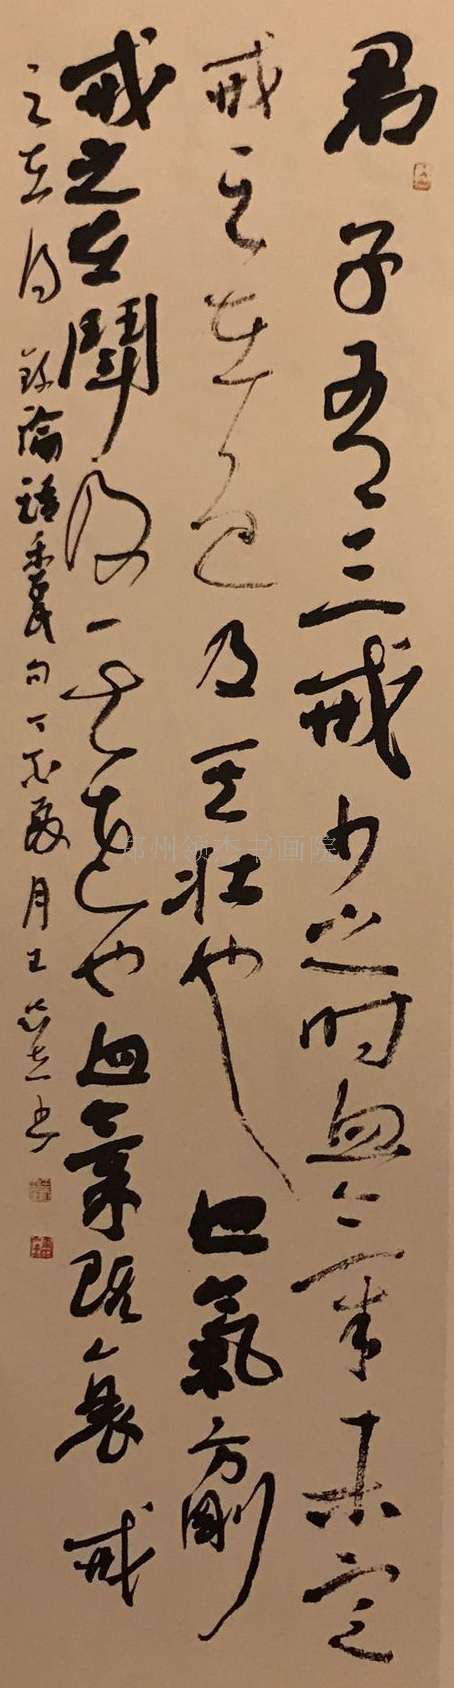 君子有三戒少之时血气未定
戒之在色及其壮也血氣方剛
戒之在鬪及其老也血氣既衰戒
之在得 錄論語季氏句丁酉夏月王志書
郑州领杰书画院